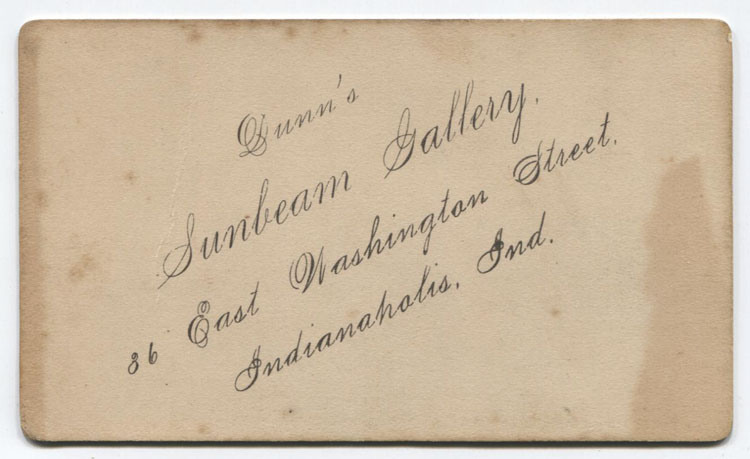 Dunn's
Sunbeam Gallery,
36 East Washington Street,
Indianapolis, Ind.